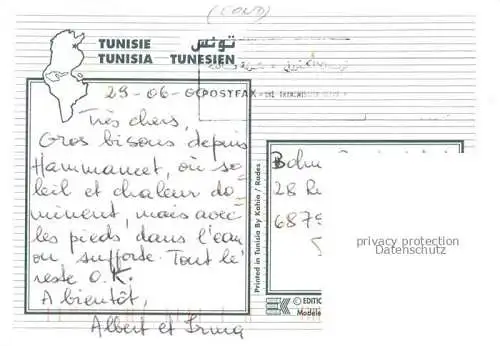 (COND)
TUNISIE تونس
TUNISIA TUNESIEN
29-06-
POSTFAX
Très chers,
Gros bisous depuis
Hammamet, où so-
leil et chaleur do-
minent, mais avec
les pieds dans l'eau
on supporte. Tout le
reste O.K.
A bientôt,
Albert et Irma
Printed in Tunisia By Kahia / Rades
28
privacy protection
Datenschutz
© EDITION
Modèle